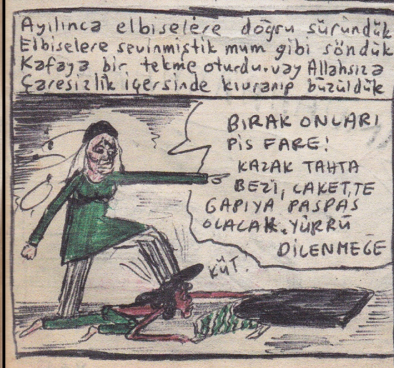 Ayılınca elbiselere doğru süründük
Elbiselere sevinmiştik mum gibi söndük
Kafaya bir tekme oturdu. vay Allahsıza
Çaresizlik içersinde kıvranıp büzüldük
BIRAK ONLARI
PİS FARE!
KAZAK TAHTA
BEZİ, CAKETTE
GAPIYA PASPAS
OLACAK. YÜRRÜ
DİLENMEĞE
KÜT.